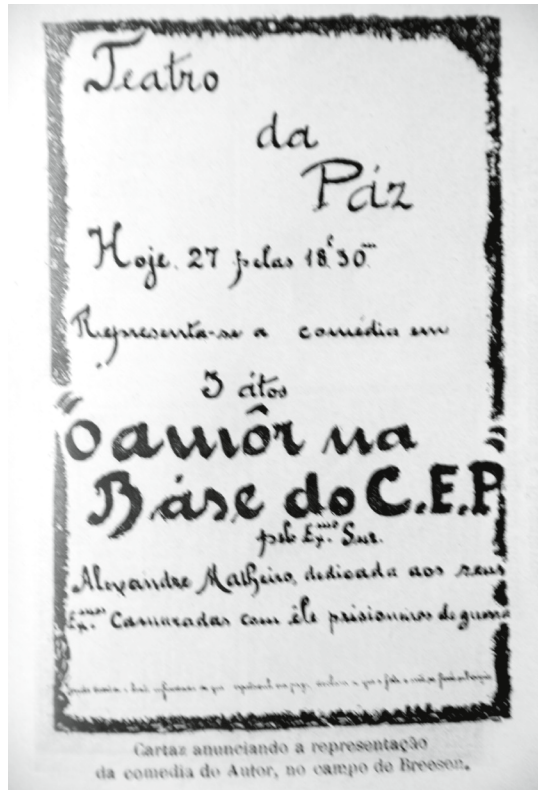 Teatro
da
Páz
Hoje. 27 pelas 18,30
Representa-se a comédia em
3 átos
"O amôr na
Báse do C.E.P
pelo Exmo Snr.
Alexandre Malheiro, dedicada aos seus
Exmos Camaradas com êle prisioneiros de guerra
Cartaz anunciando a representação
da comedia do Autor, no campo de Breesen.